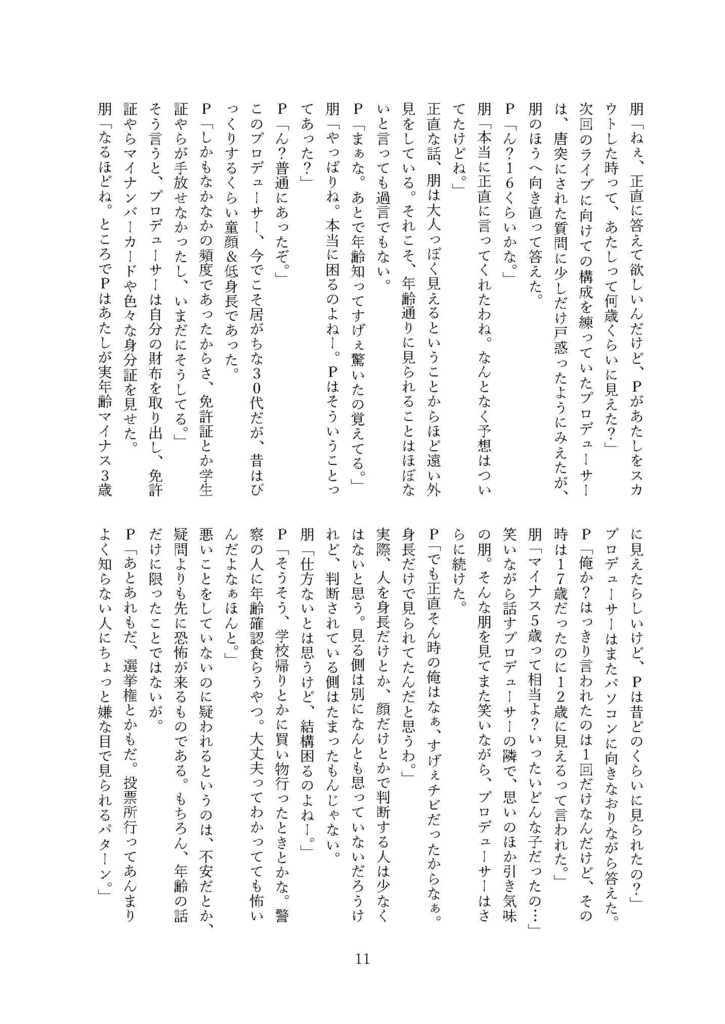 朋「ねぇ、正直に答えて欲しいんだけど、Pがあたしをスカ
ウトした時って、あたしって何歳くらいに見えた？」
次回のライブに向けての構成を練っていたプロデューサー
は、唐突にされた質問に少しだけ戸惑ったようにみえたが、
朋のほうへ向き直って答えた。
P「ん？16くらいかな。」
朋「本当に正直に言ってくれたわね。なんとなく予想はつい
てたけどね。」
正直な話、朋は大人っぽく見えるということからほど遠い外
見をしている。それこそ、年齢通りに見られることはほぼな
いと言っても過言でもない。
P「まぁな。あとで年齢知ってすげぇ驚いたの覚えてる。」
朋「やっぱりね。本当に困るのよねー。Pはそういうことっ
てあった？」
P「ん？普通にあったぞ。」
このプロデューサー、今でこそ居がちな30代だが、昔はび
っくりするくらい童顔＆低身長であった。
P「しかもなかなかの頻度であったからさ、免許証とか学生
証やらが手放せなかったし、いまだにそうしてる。」
そう言うと、プロデューサーは自分の財布を取り出し、免許
証やらマイナンバーカードや色々な身分証を見せた。
朋「なるほどね。ところでPはあたしが実年齢マイナス3歳
に見えたらしいけど、Pは昔どのくらいに見られたの？」
プロデューサーはまたパソコンに向きなおりながら答えた。
P「俺か？はっきり言われたのは1回だけなんだけど、その
時は17歳だったのに12歳に見えるって言われた。」
朋「マイナス5歳って相当よ？いったいどんな子だったの…」
笑いながら話すプロデューサーの隣で、思いのほか引き気味
の朋。そんな朋を見てまた笑いながら、プロデューサーはさ
らに続けた。
P「でも正直そん時の俺はなぁ、すげぇチビだったからなぁ。
身長だけで見られてたんだと思うわ。」
実際、人を身長だけとか、顔だけとかで判断する人は少なく
はないと思う。見る側は別になんとも思っていないだろうけ
れど、判断されている側はたまったもんじゃない。
朋「仕方ないとは思うけど、結構困るのよねー。」
P「そうそう、学校帰りとかに買い物行ったときとかな。警
察の人に年齢確認食らうやつ。大丈夫ってわかってても怖い
んだよなぁほんと。」
悪いことをしていないのに疑われるというのは、不安だとか、
疑問よりも先に恐怖が来るものである。もちろん、年齢の話
だけに限ったことではないが。
P「あとあれもだ、選挙権とかもだ。投票所行ってあんまり
よく知らない人にちょっと嫌な目で見られるパターン。」
11